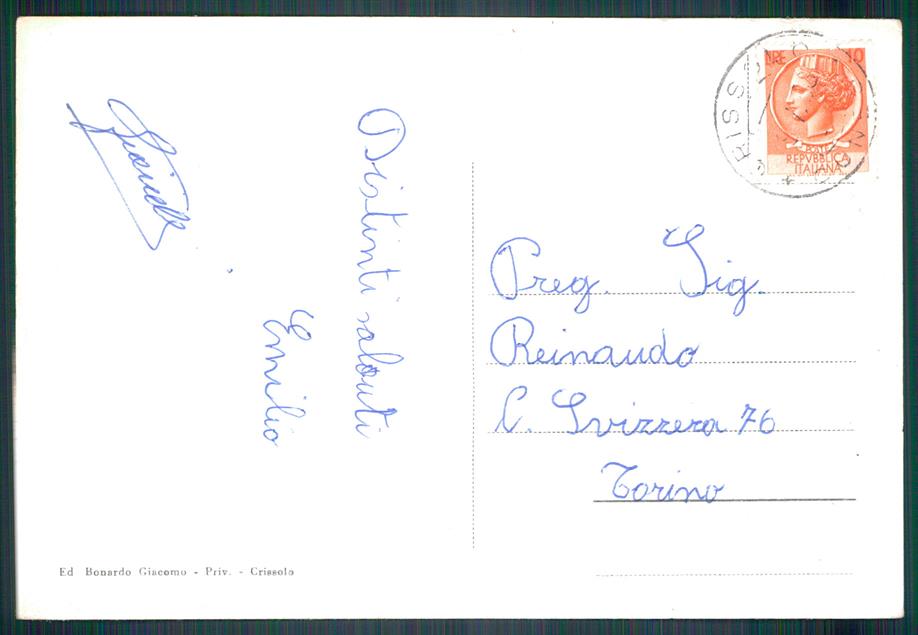 Distinti saluti
Emilio
LIRE 10
POSTE
REPVBBLICA
ITALIANA
Preg. Sig.
Reinaudo
C. Svizzera 76
Torino
Ed Bonardo Giacomo - Priv. - Crissolo